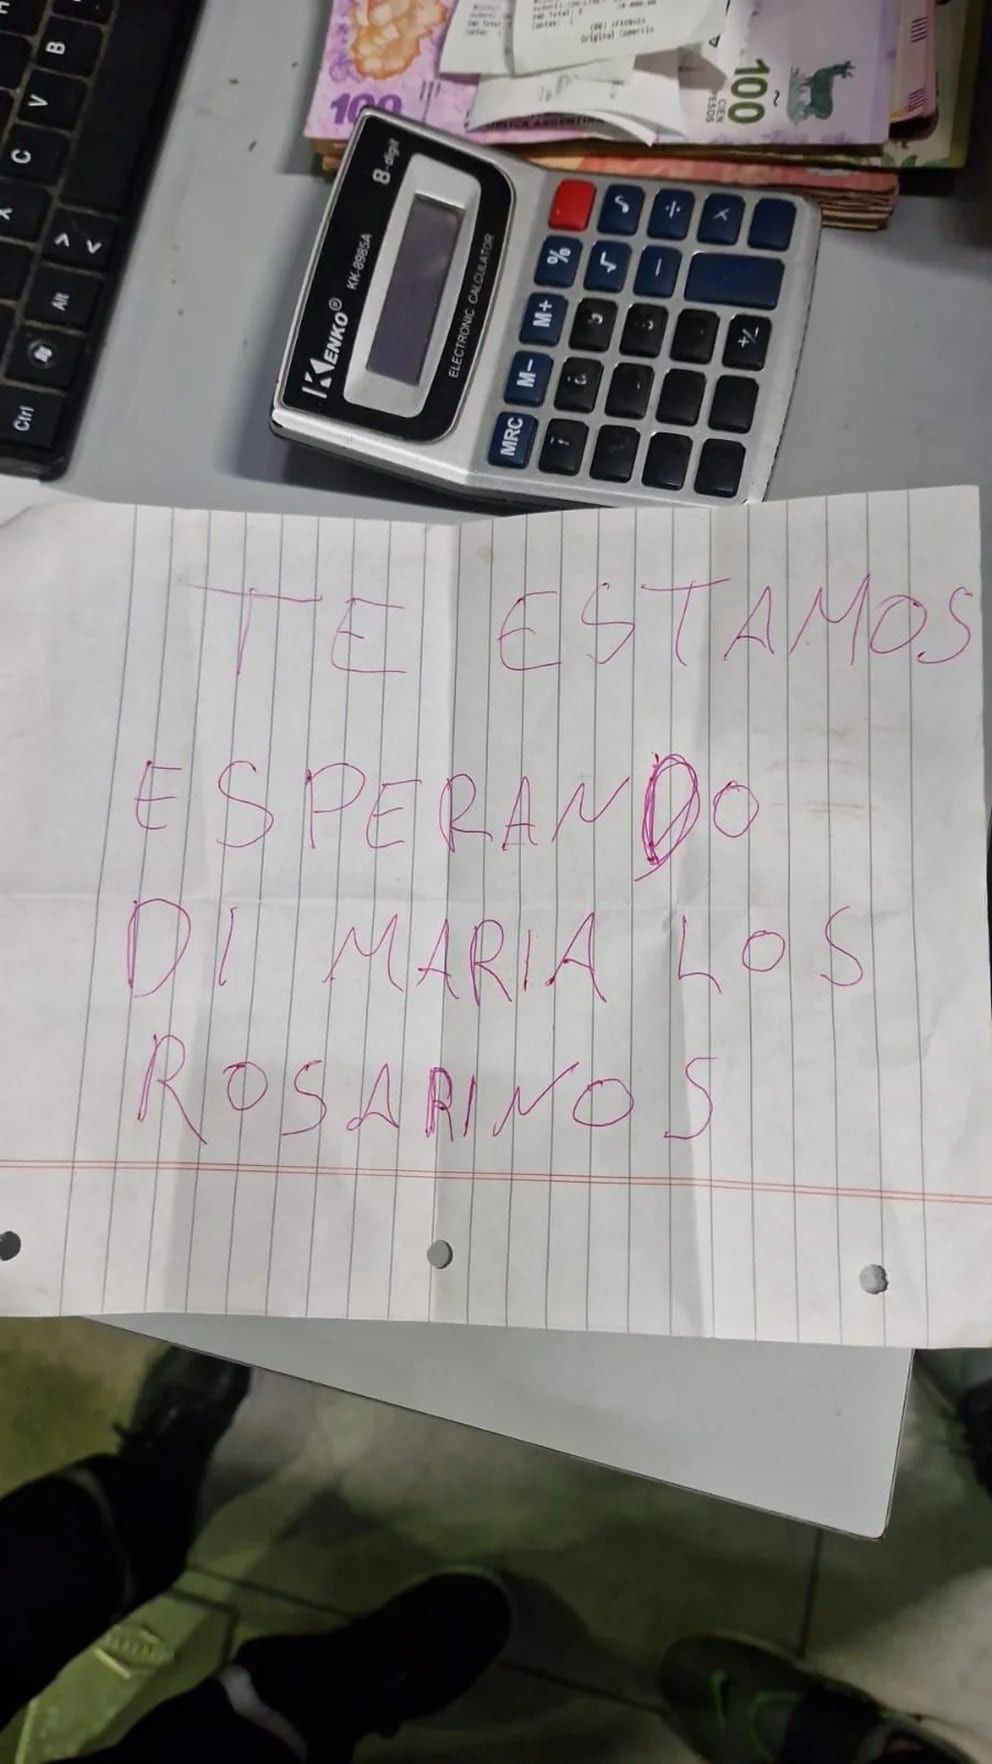 TE ESTAMOS
ESPERANDO
DI MARIA LOS
ROSARINOS
KENKO® KK-8985A 8-digit
ELECTRONIC CALCULATOR
% ÷ ×
M+ √ − +/−
M−
MRC
100
100
CIEN
PESOS
Original Comercio
B
V
C
Alt
Ctrl
> <